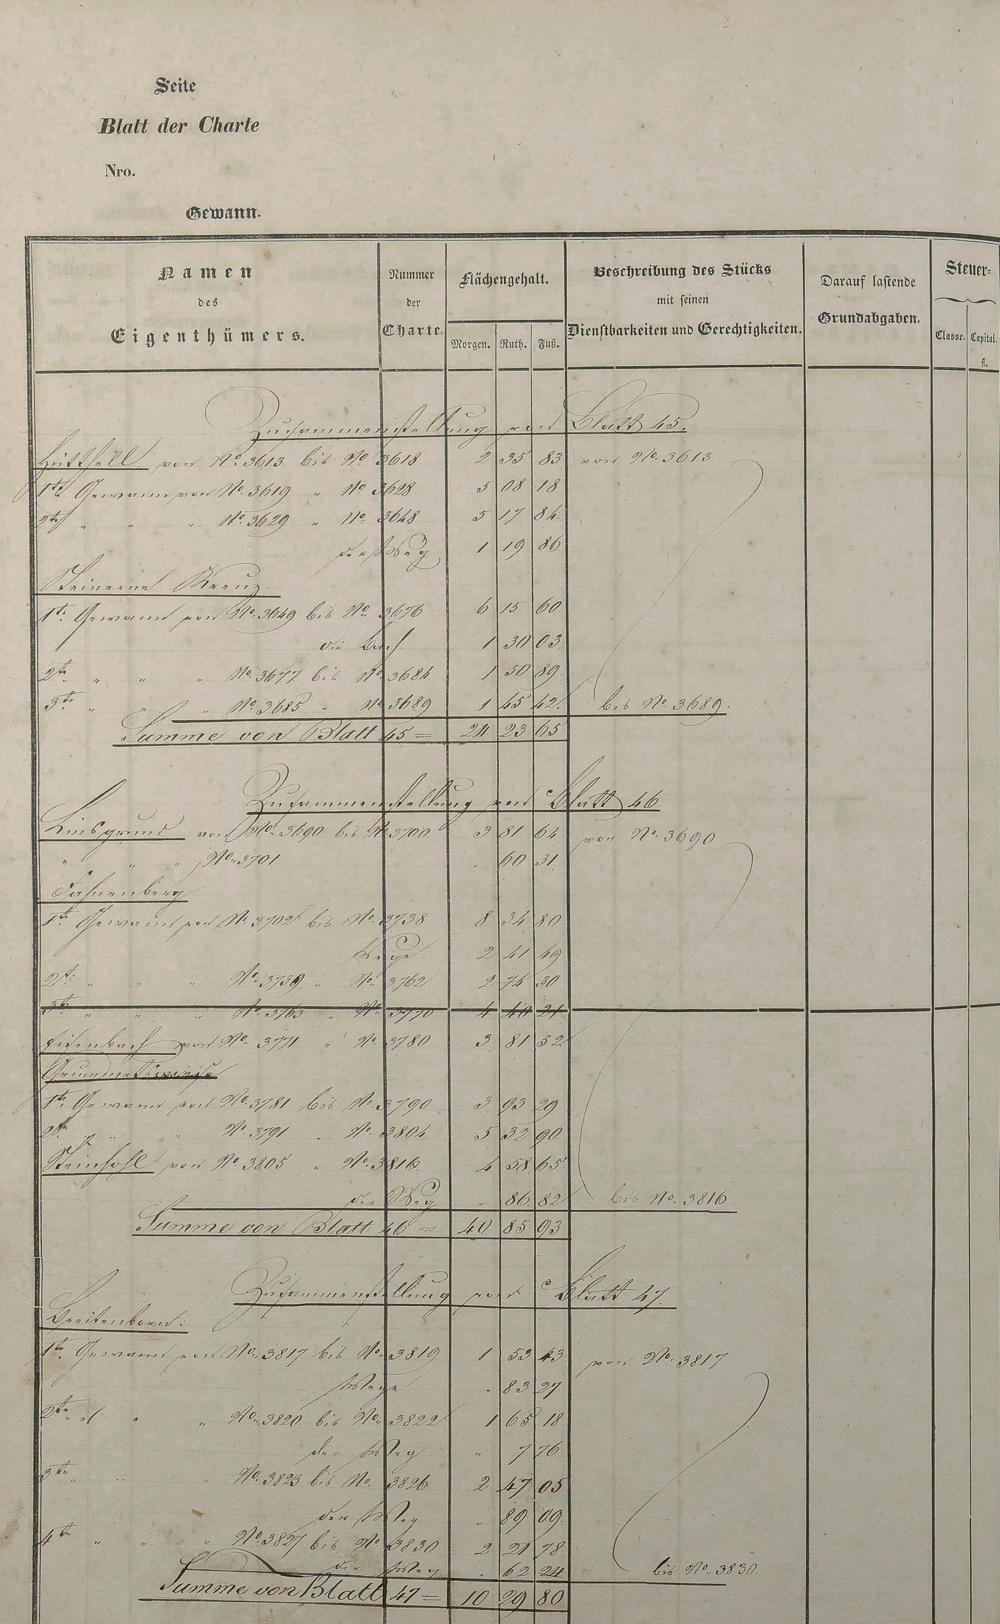 Seite
Blatt der Charte
Nro.
Gewann.
Namen des Eigenthümers.
Nummer der Charte.
Flächengehalt.
Morgen. Ruth. Fuß.
Beschreibung des Stücks mit seinen Dienstbarkeiten und Gerechtigkeiten.
Darauf lastende Grundabgaben.
Steuer=
Classe. Capital.
fl.
Zusammenstellung von Blatt 45.
von No. 3613 bis No 3618 2 35 83 von No. 3613
1te Gewann von No. 3619 " No 3628 5 08 18
2te " " " No. 3629 " No. 3648 5 17 84
der Weg 1 19 86
Steinerne Kreuz.
1te Gewann von No. 3649 bis No 3676 6 15 60
die Bach 1 30 03
2te " " " No. 3677 bis No. 3684 1 50 89
3te " " " No. 3685 " No 3689 1 45 42 bis No. 3689.
Summe von Blatt 45 = 24 23 65
Zusammenstellung von Blatt 46
Linsgrund von No. 3690 bis No. 3700 3 81 64 von No. 3690
" " " No. 3701 . 60 31
Fahrenberg
1te Gewann von No. 3702 bis No. 3738 8 34 80
Wege 2 41 49
2te " " " No. 3739 " No. 3762 2 74 30
3te " " " No. 3763 " No. 3770 4 40 21
von No. 3771 " No. 3780 3 81 52
1te Gewann von No. 3781 bis No. 3790 3 93 29
2te " " No. 3791 " No. 3804 5 32 90
Steinhohl von No. 3805 " No. 3816 4 58 65
der Weg . 86 82 bis No. 3816.
Summe von Blatt 46 = 40 85 93
Zusammenstellung von Blatt 47.
Breitenborn:
1te Gewann von No. 3817 bis No. 3819 1 53 43 von No. 3817
Wege . 83 27
2te " " " No. 3820 bis No. 3822 1 65 18
der Weg " 7 76
3te " " " No. 3823 bis No. 3826 2 47 05
der Weg " 89 09
4te " " " No. 3827 bis No. 3830 2 21 78
der Weg . 62 24 bis No. 3830.
Summe von Blatt 47 = 10 29 80